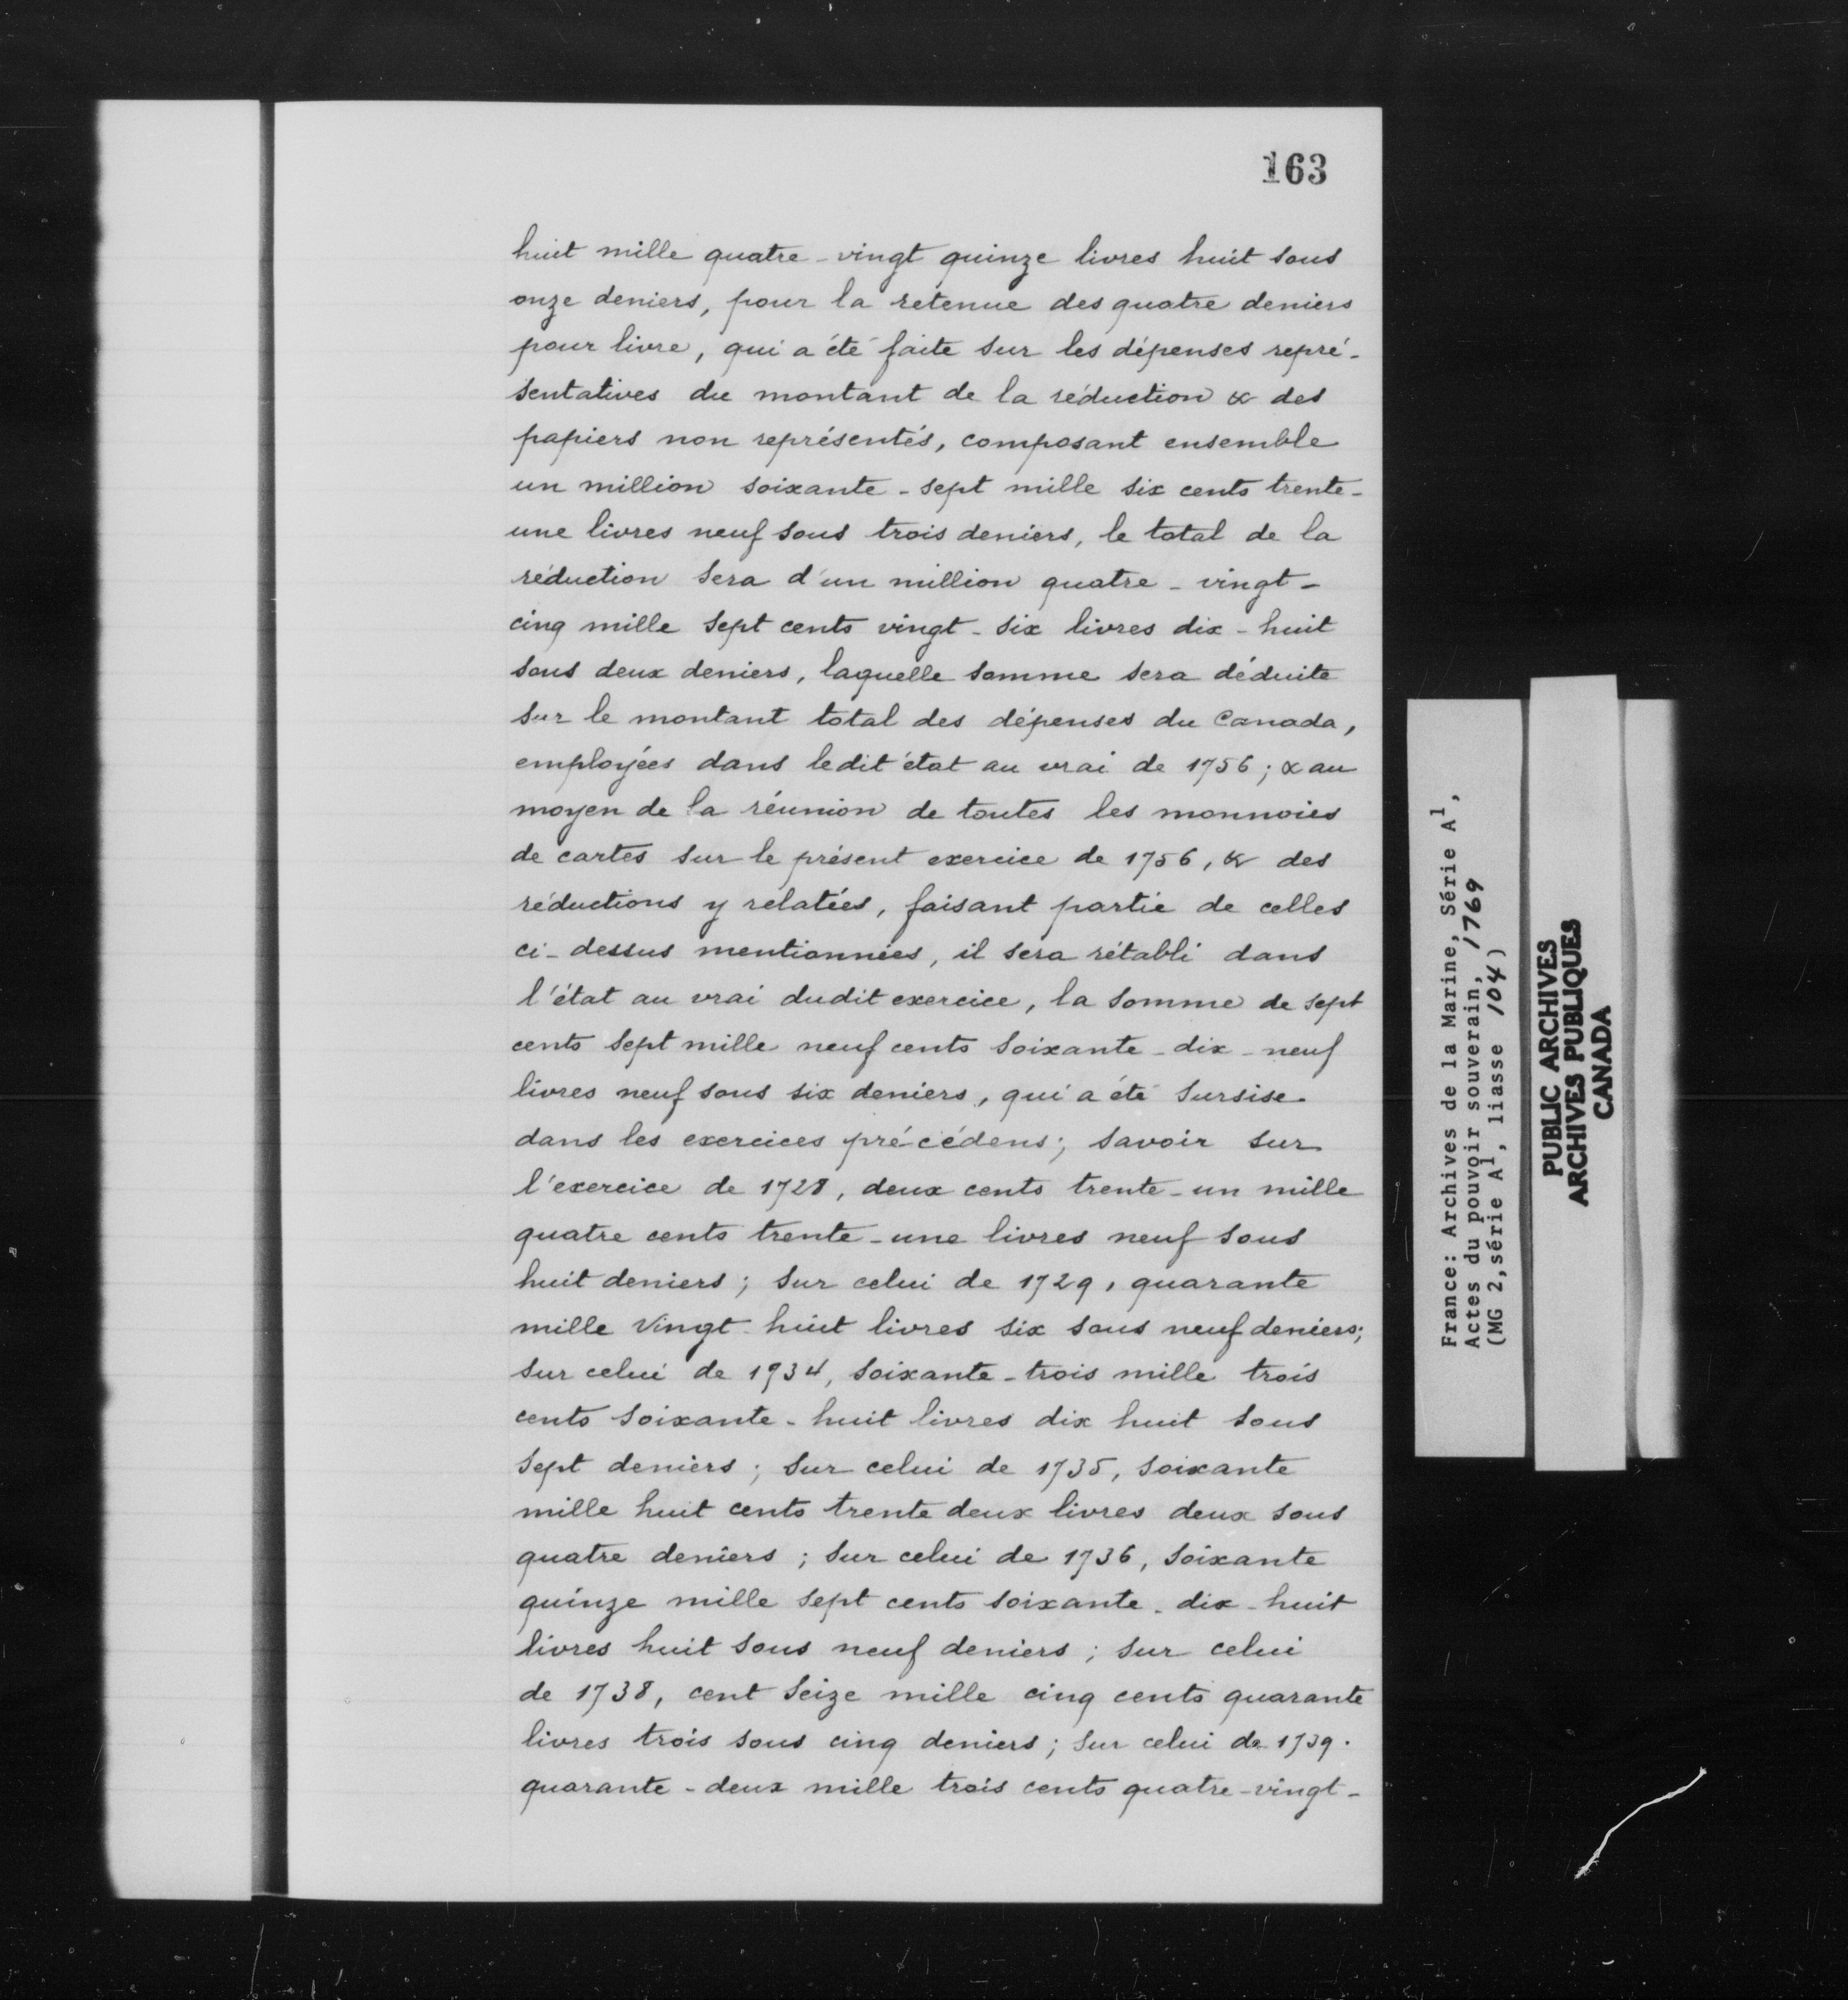 163
huit mille quatre-vingt quinze livres huit sous
onze deniers, pour la retenue des quatre deniers
pour livre, qui a été faite sur les dépenses repré-
sentatives du montant de la réduction & des
papiers non représentés, composant ensemble
un million soixante-sept mille six cents trente-
une livres neuf sous trois deniers, le total de la
réduction sera d'un million quatre-vingt-
cinq mille sept cents vingt-six livres dix-huit
sous deux deniers, laquelle somme sera déduite
sur le montant total des dépenses du Canada,
employées dans ledit état au vrai de 1756; & au
moyen de la réunion de toutes les monnoies
de cartes sur le présent exercice de 1756, & des
réductions y relatées, faisant partie de celles
ci-dessus mentionnées, il sera rétabli dans
l'état au vrai dudit exercice, la somme de sept
cents sept mille neuf cents soixante-dix-neuf
livres neuf sous six deniers, qui a été sursise
dans les exercices précédens; savoir sur
l'exercice de 1728, deux cents trente-un mille
quatre cents trente-une livres neuf sous
huit deniers; sur celui de 1729, quarante
mille vingt-huit livres six sous neuf deniers;
sur celui de 1734, soixante-trois mille trois
cents soixante-huit livres dix huit sous
sept deniers; sur celui de 1735, soixante
mille huit cents trente deux livres deux sous
quatre deniers; sur celui de 1736, soixante
quinze mille sept cents soixante-dix-huit
livres huit sous neuf deniers; sur celui
de 1738, cent seize mille cinq cents quarante
livres trois sous cinq deniers; sur celui de 1739.
quarante-deux mille trois cents quatre-vingt-
France: Archives de la Marine, Série A1,
Actes du pouvoir souverain, 1769
(MG 2, série A1, liasse 104)
PUBLIC ARCHIVES
ARCHIVES PUBLIQUES
CANADA